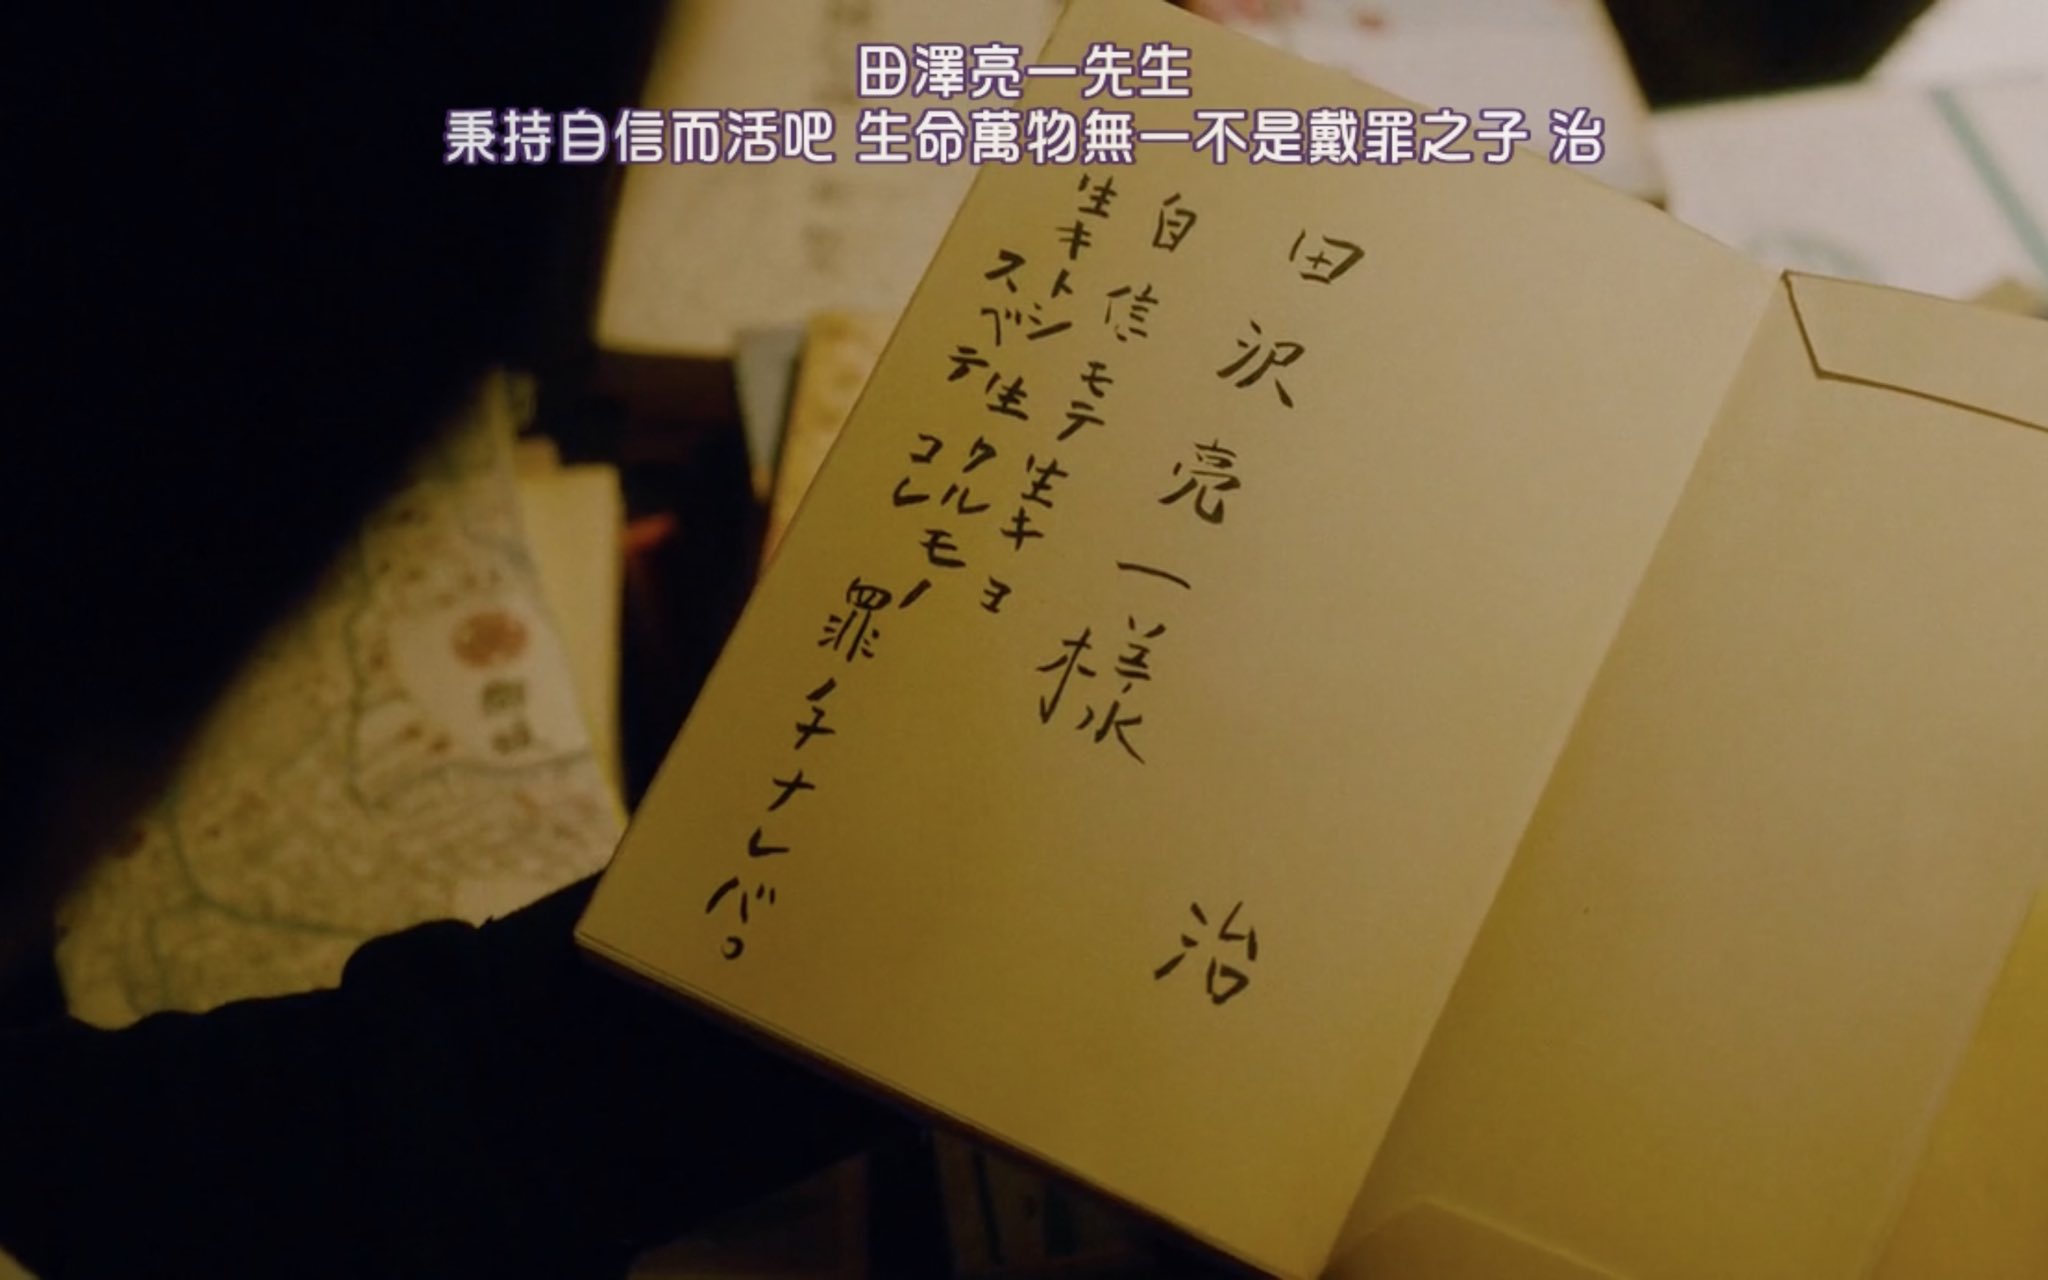 田澤亮一先生
秉持自信而活吧 生命萬物無一不是戴罪之子 治
田沢亮一様
自信モテ生キヨ
生キトシ生クルモノ
スベテ
コレ
罪ノ子ナレバ。
治